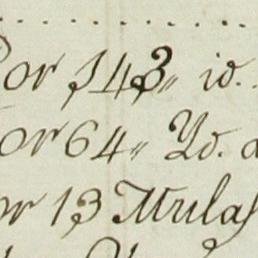 or 143 „ id.
or 64 „ Yd. a
or 13 Mulas